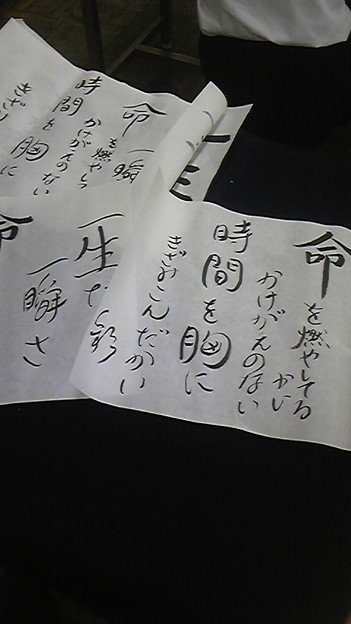 命
を燃やしてる
かし
かけがえのない
時間を胸に
きざみこんだかい
一生だ彩
一瞬さ
命
命一瞬
を燃やし
かけがえのない
時間を胸に
きざみ